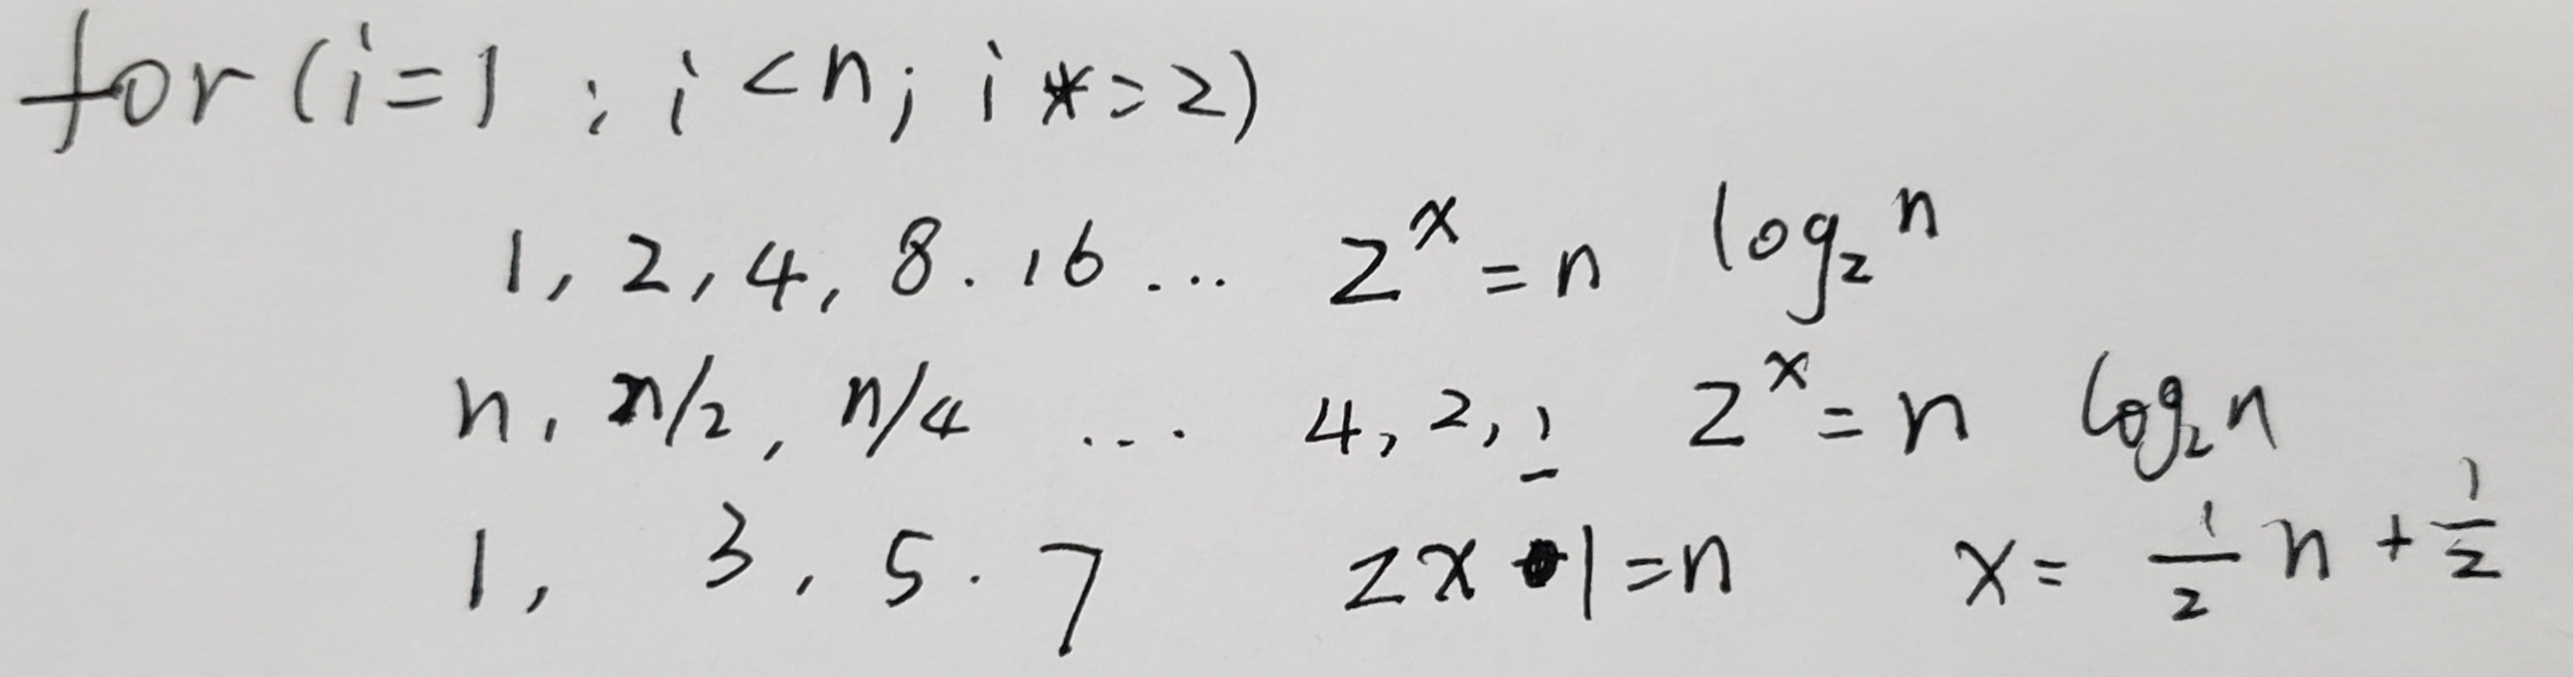 for (i=1 ; i<n; i *= 2)
1, 2, 4, 8. 16 ... 2^x = n log₂ⁿ
n, n/2, n/4 ... 4, 2, 1 2^x = n log₂n
1, 3, 5. 7 2x - 1 = n x = 1/2 n + 1/2